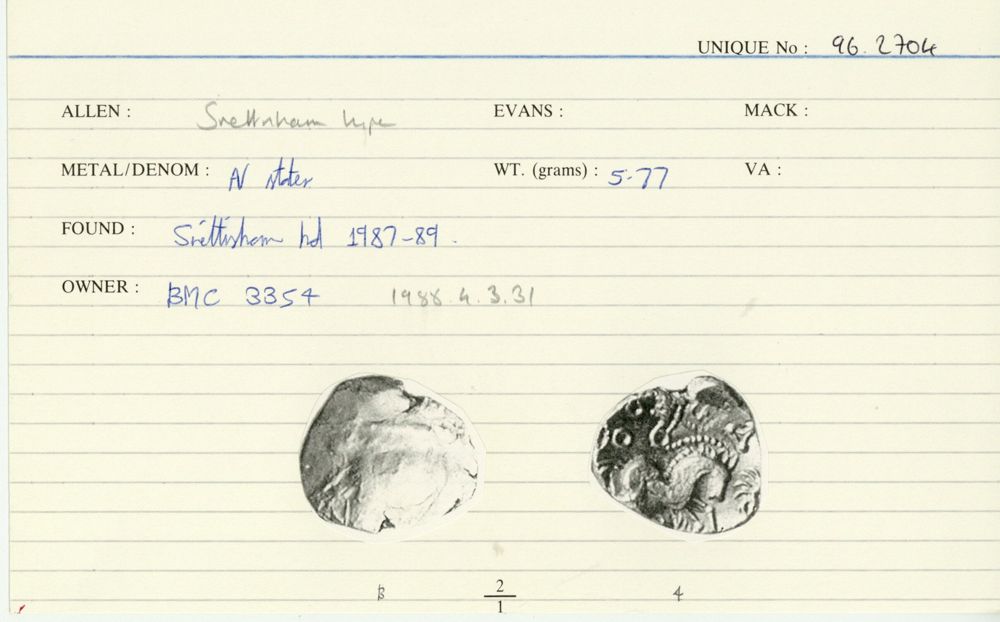 UNIQUE No : 96. 2704
ALLEN : Snettisham type EVANS : MACK :
METAL/DENOM : AV stater WT. (grams) : 5.77 VA :
FOUND : Snettisham hd 1987-89.
OWNER : BMC 3354 1988.4.3.31
B 2 4
1